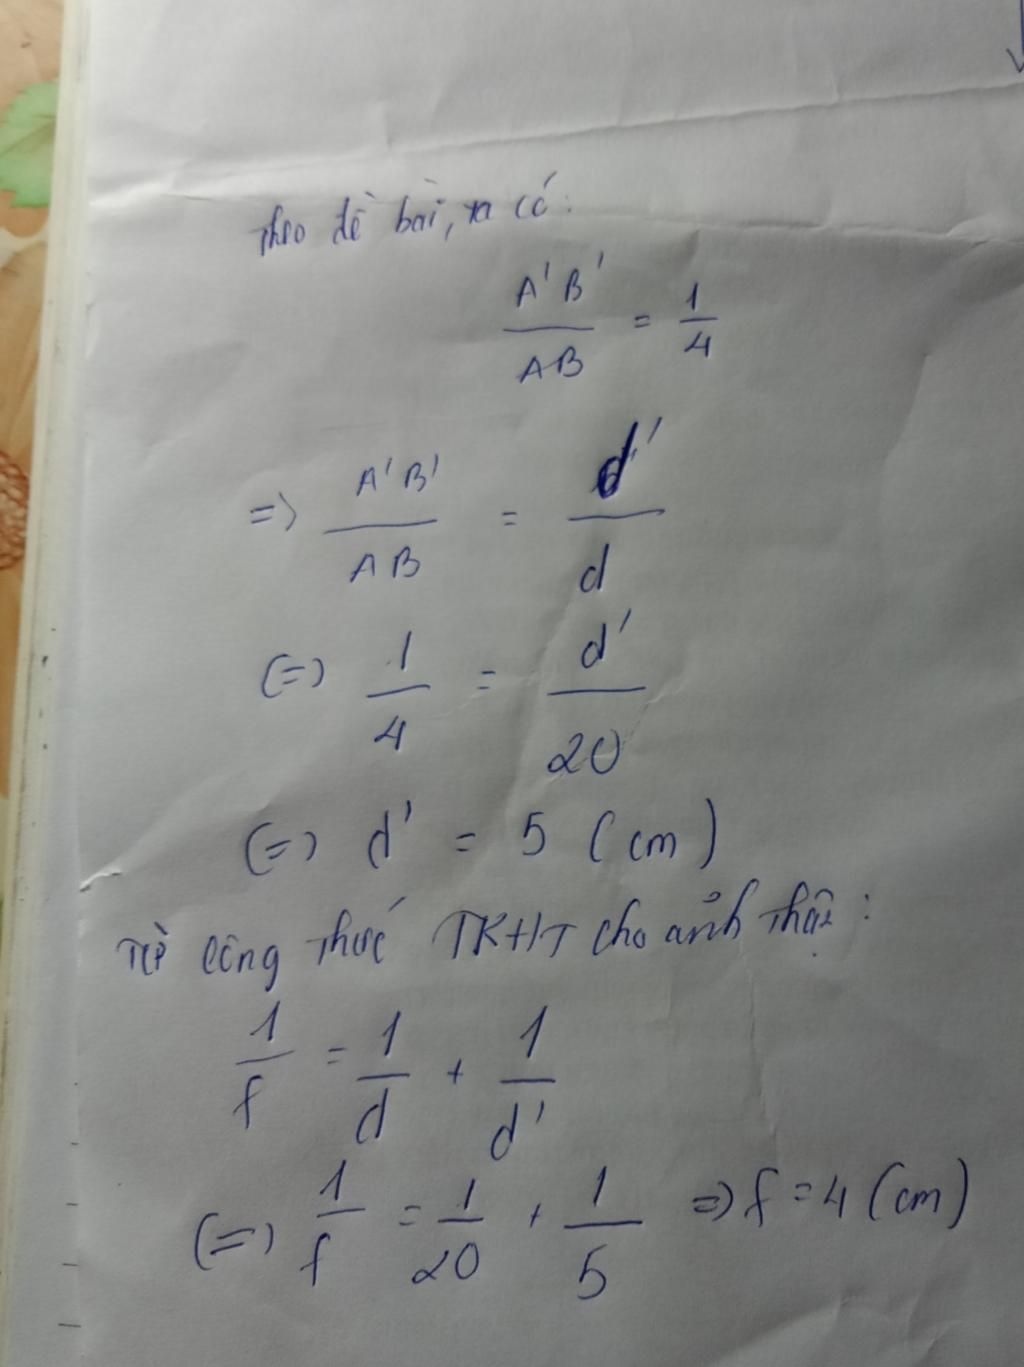 Theo đề bài, ta có:
A'B'/AB = 1/4
=> A'B'/AB = d'/d
(=) 1/4 = d'/20
(=) d' = 5 (cm)
Từ công thức TKHT cho ảnh thật:
1/f = 1/d + 1/d'
(=) 1/f = 1/20 + 1/5 => f = 4 (cm)